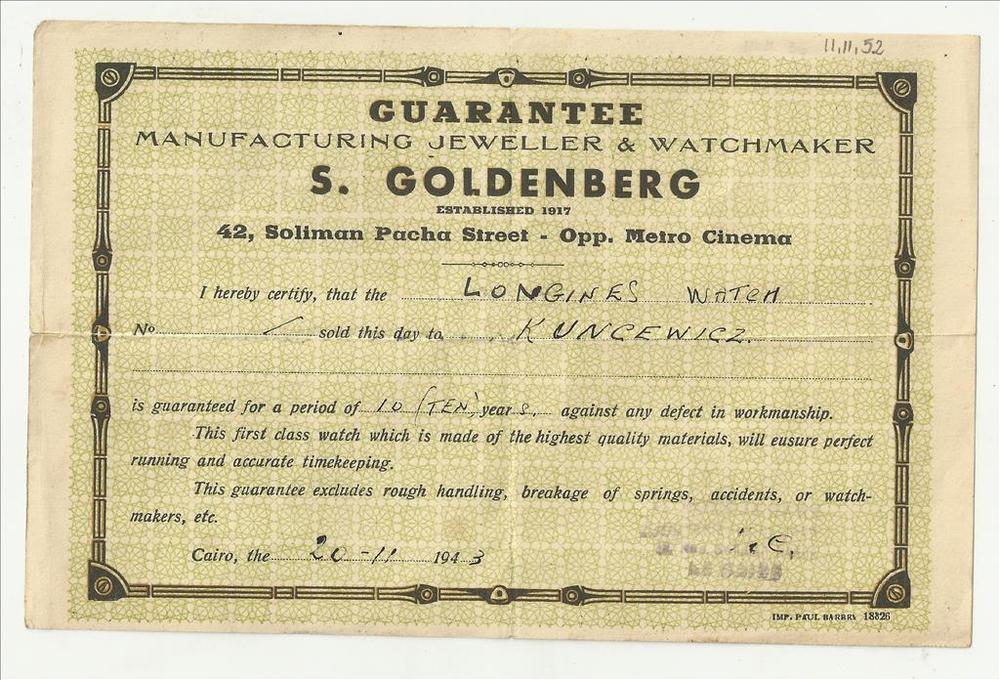 11,11,52
GUARANTEE
MANUFACTURING JEWELLER & WATCHMAKER
S. GOLDENBERG
ESTABLISHED 1917
42, Soliman Pacha Street - Opp. Metro Cinema
I hereby certify, that the LONGINES WATCH
No / sold this day to KUNCEWICZ.
is guaranteed for a period of 10 (TEN) years, against any defect in workmanship.
This first class watch which is made of the highest quality materials, will eusure perfect
running and accurate timekeeping.
This guarantee excludes rough handling, breakage of springs, accidents, or watch-
makers, etc.
Cairo, the 20-11 1943
IMP. PAUL BARBEY 18826